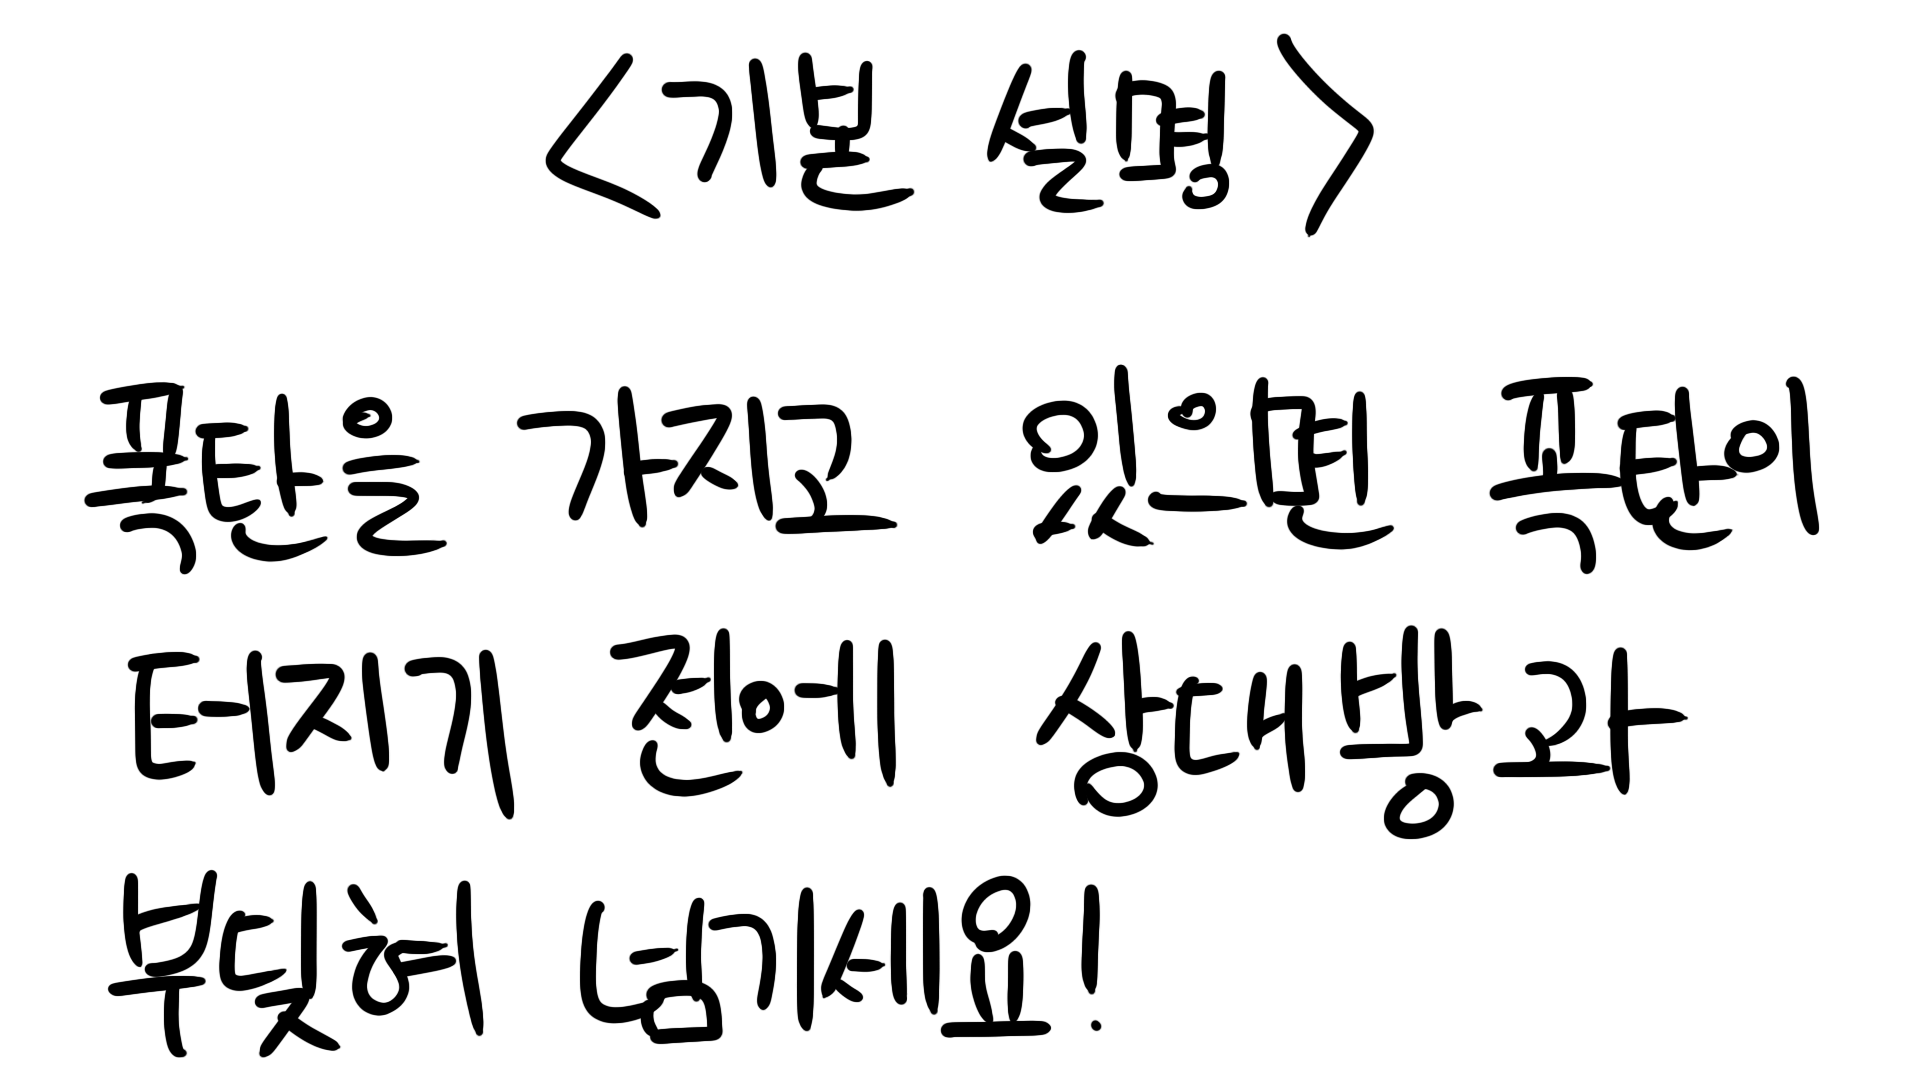 <기본 설명>
폭탄을 가지고 있으면 폭탄이
터지기 전에 상대방과
부딪혀 넘기세요!